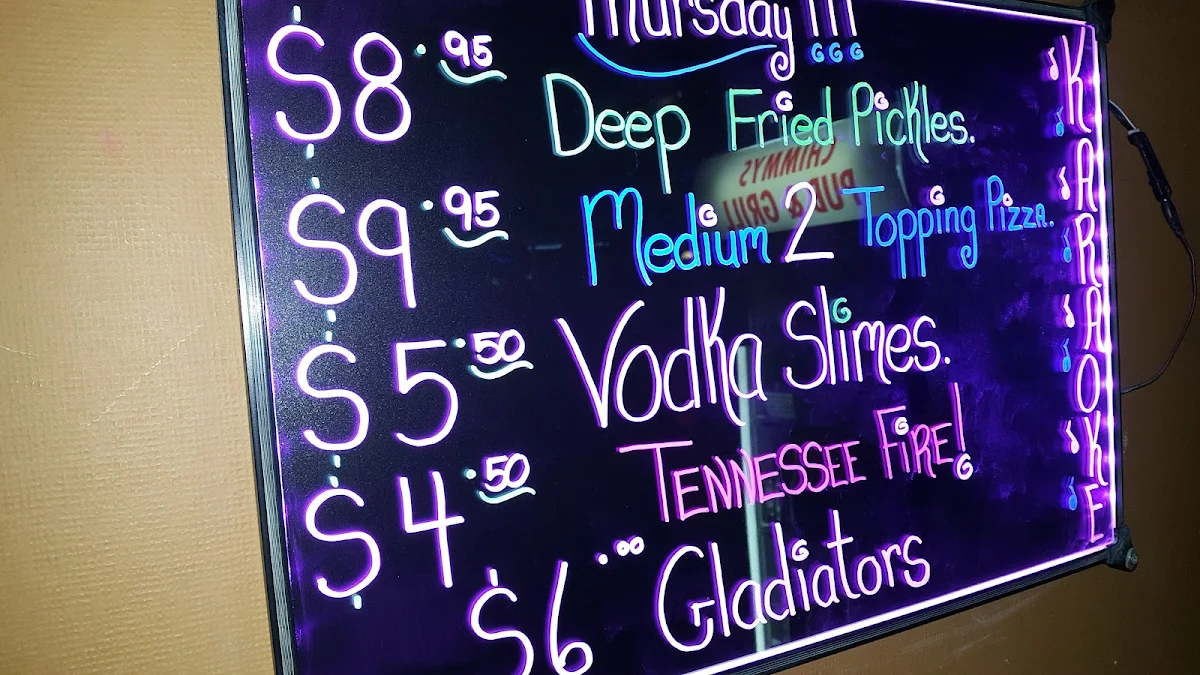 Thursday !!!
$8.95 Deep Fried Pickles.
$9.95 Medium 2 Topping Pizza.
$5.50 Vodka Slimes.
$4.50 TENNESSEE FIRE!
$6.00 Gladiators
KARAOKE
CHIMMYS
PUB & GRILL